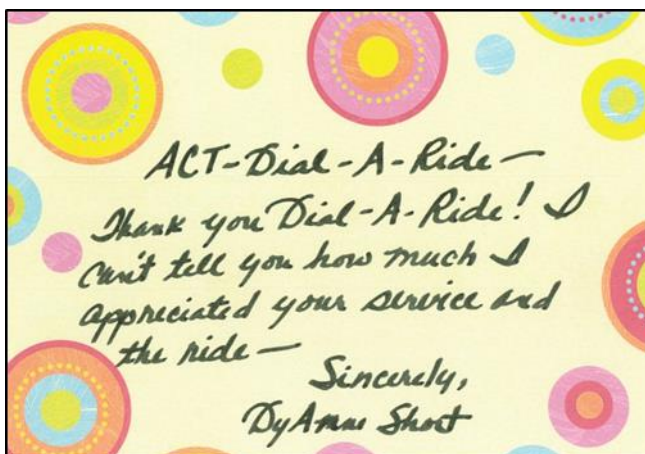 ACT-Dial-A-Ride—
Thank you Dial-A-Ride! I
can't tell you how much I
appreciated your service and
the ride—
Sincerely,
DyAnne Short